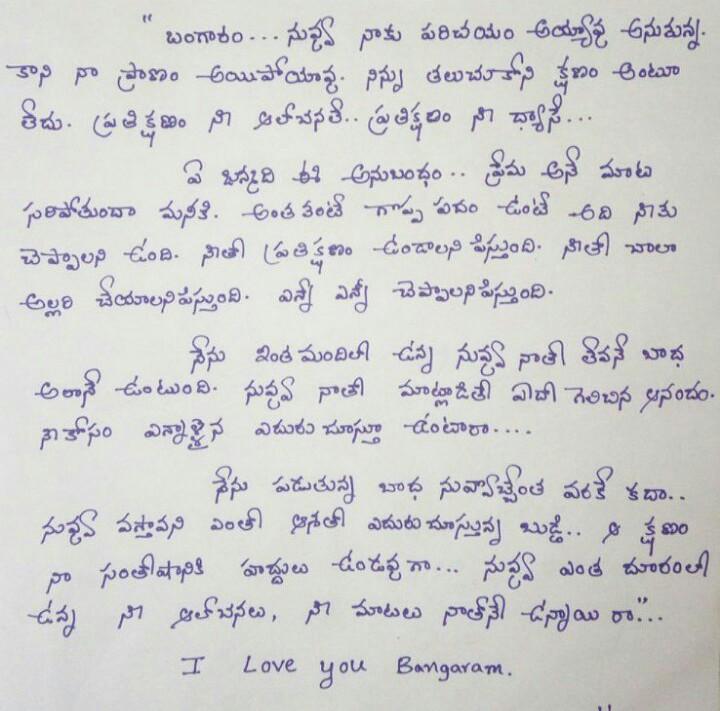 " బంగారం... నువ్వు నాకు పరిచయం అయ్యావు అనుకున్న.
కాని నా ప్రాణం అయిపోయావు. నిన్ను తలుచుకోని క్షణం అంటూ
లేదు. ప్రతిక్షణం నీ ఆలోచనలే.. ప్రతిక్షణం నీ ధ్యాసే...
ఏ జన్మది ఈ అనుబంధం.. ప్రేమ అనే మాట
సరిపోతుందా మనకి. అంతకంటే గొప్ప పదం ఉంటే అది నీకు
చెప్పాలని ఉంది. నీతో ప్రతిక్షణం ఉండాలనిపిస్తుంది. నీతో చాలా
అల్లరి చేయాలనిపిస్తుంది. ఎన్నో ఎన్నో చెప్పాలనిపిస్తుంది.
నేను ఇంత మందిలో ఉన్న నువ్వు నాతో లేవనే బాధ
అలానే ఉంటుంది. నువ్వు నాతో మాట్లాడితే ఏదో గెలిచిన ఆనందం.
నీకోసం ఎన్నాళ్ళైన ఎదురు చూస్తూ ఉంటారా....
నేను పడుతున్న బాధ నువ్వొచ్చేంత వరకే కదా..
నువ్వు వస్తావని ఎంతో ఆశతో ఎదురుచూస్తున్న బుజ్జి.. ఆ క్షణం
నా సంతోషానికి హద్దులు ఉండవు గా... నువ్వు ఎంత దూరంలో
ఉన్న నీ ఆలోచనలు, నీ మాటలు నాతోనే ఉన్నాయి రా"...
I Love you Bangaram.